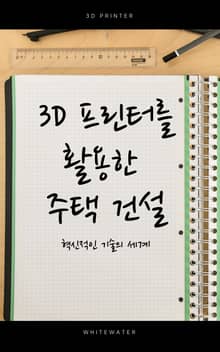 3D PRINTER
3D 프린터를
활용한
주택 건설
혁신적인 기술의 세계
WHITEWATER